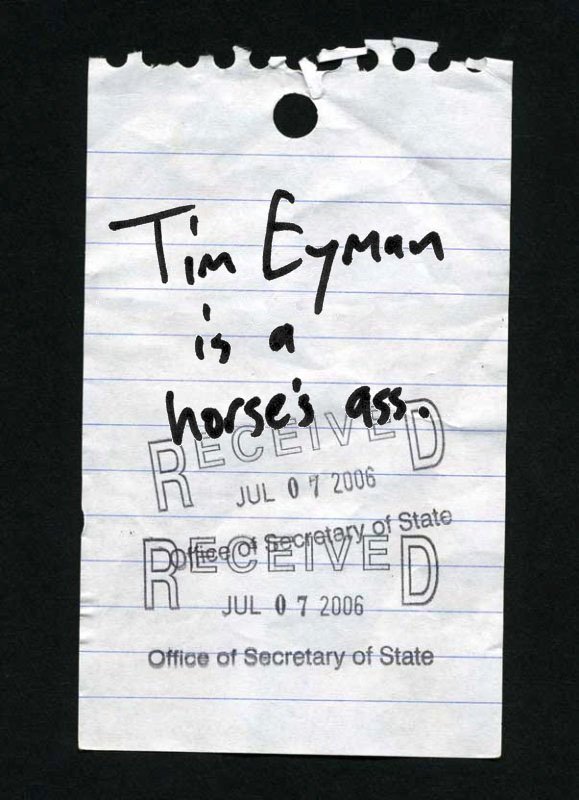 Tim Eyman
is a
horse's ass.
RECEIVED
JUL 07 2006
Office of Secretary of State
RECEIVED
JUL 07 2006
Office of Secretary of State